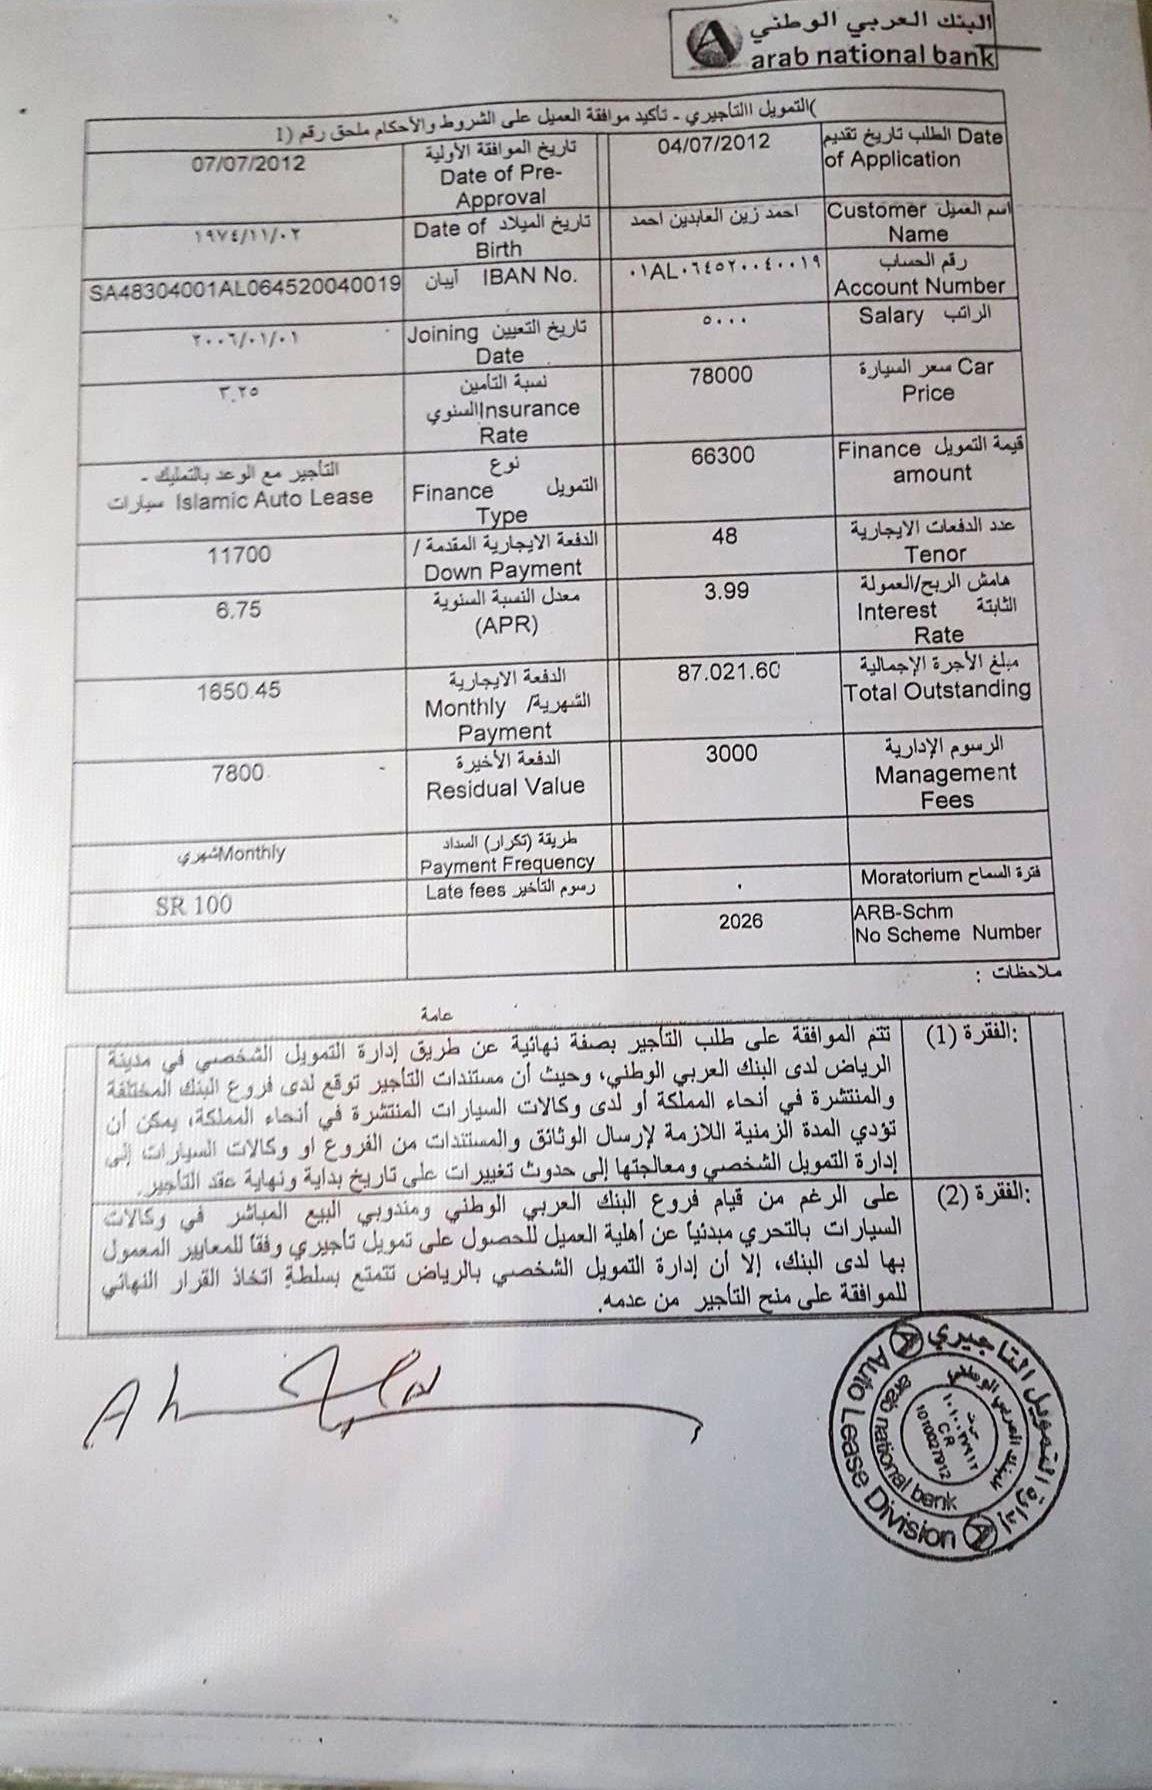 البنك العربي الوطني
arab national bank
(التمويل التأجيري - تأكيد موافقة العميل على الشروط والأحكام ملحق رقم (1
الطلب تاريخ تقديم Date of Application
04/07/2012
تاريخ الموافقة الأولية
Date of Pre-Approval
07/07/2012
اسم العميل Customer Name
احمد زين العابدين احمد
تاريخ الميلاد Date of Birth
١٩٧٤/١١/٠٢
رقم الحساب
Account Number
٠١AL٠٦٤٥٢٠٠٤٠٠١٩
آيبان IBAN No.
SA48304001AL064520040019
الراتب Salary
٥٠٠٠
تاريخ التعيين Joining Date
٢٠٠٦/٠١/٠١
سعر السيارة Car Price
78000
نسبة التأمين
السنوي Insurance Rate
٣.٢٥
قيمة التمويل Finance amount
66300
نوع
التمويل Finance
Type
التأجير مع الوعد بالتمليك -
سيارات Islamic Auto Lease
عدد الدفعات الايجارية
Tenor
48
الدفعة الايجارية المقدمة /
Down Payment
11700
هامش الربح/العمولة
الثابتة Interest
Rate
3.99
معدل النسبة السنوية
(APR)
6.75
مبلغ الأجرة الإجمالية
Total Outstanding
87.021.60
الدفعة الايجارية
الشهرية/ Monthly
Payment
1650.45
الرسوم الإدارية
Management
Fees
3000
الدفعة الأخيرة
Residual Value
7800
طريقة (تكرار) السداد
Payment Frequency
شهري Monthly
فترة السماح Moratorium
٠
رسوم التأخير Late fees
SR 100
ARB-Schm
No Scheme Number
2026
ملاحظات :
عامة
الفقرة (1):
تتم الموافقة على طلب التأجير بصفة نهائية عن طريق إدارة التمويل الشخصي في مدينة
الرياض لدى البنك العربي الوطني، وحيث أن مستندات التأجير توقع لدى فروع البنك المختلفة
والمنتشرة في أنحاء المملكة أو لدى وكالات السيارات المنتشرة في أنحاء المملكة، يمكن أن
تؤدي المدة الزمنية اللازمة لإرسال الوثائق والمستندات من الفروع او وكالات السيارات إلى
إدارة التمويل الشخصي ومعالجتها إلى حدوث تغييرات على تاريخ بداية ونهاية عقد التأجير.
الفقرة (2):
على الرغم من قيام فروع البنك العربي الوطني ومندوبي البيع المباشر في وكالات
السيارات بالتحري مبدئياً عن أهلية العميل للحصول على تمويل تأجيري وفقاً للمعايير المعمول
بها لدى البنك، إلا أن إدارة التمويل الشخصي بالرياض تتمتع بسلطة اتخاذ القرار النهائي
للموافقة على منح التأجير من عدمه.
إدارة التمويل التأجيري
Auto Lease Division
البنك العربي الوطني
arab national bank
س.ت
١٠١٠٠٢٧٩١٢
C.R
1010027912